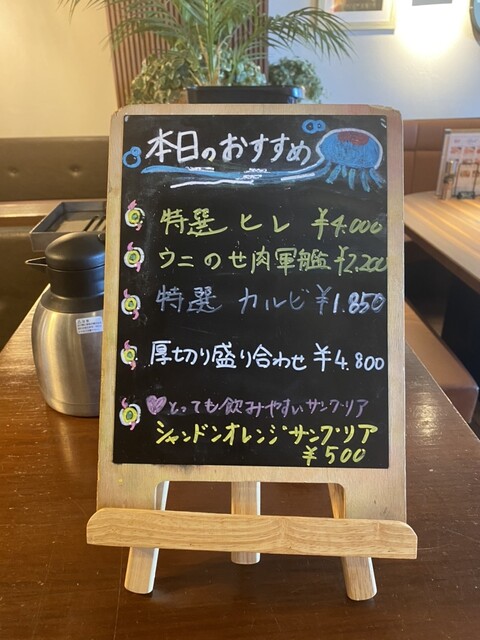 本日のおすすめ
特選 ヒレ ¥4.000
ウニのせ肉軍艦 ¥2.200
特選 カルビ ¥1.850
厚切り盛り合わせ ¥4.800
とっても飲みやすいサングリア
シャンドンオレンジサングリア
¥500